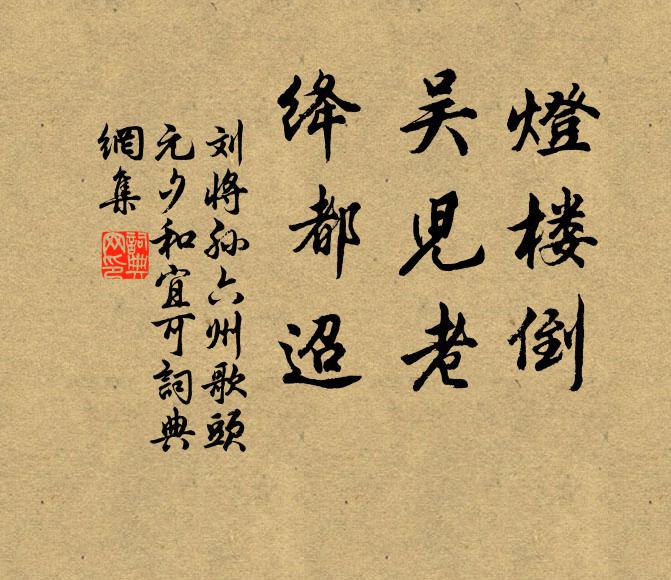 燈楼倒
吴兒老
绛都迢
刘將孙六州歌頭
元夕和宜可詞典
網集
詞典
网印